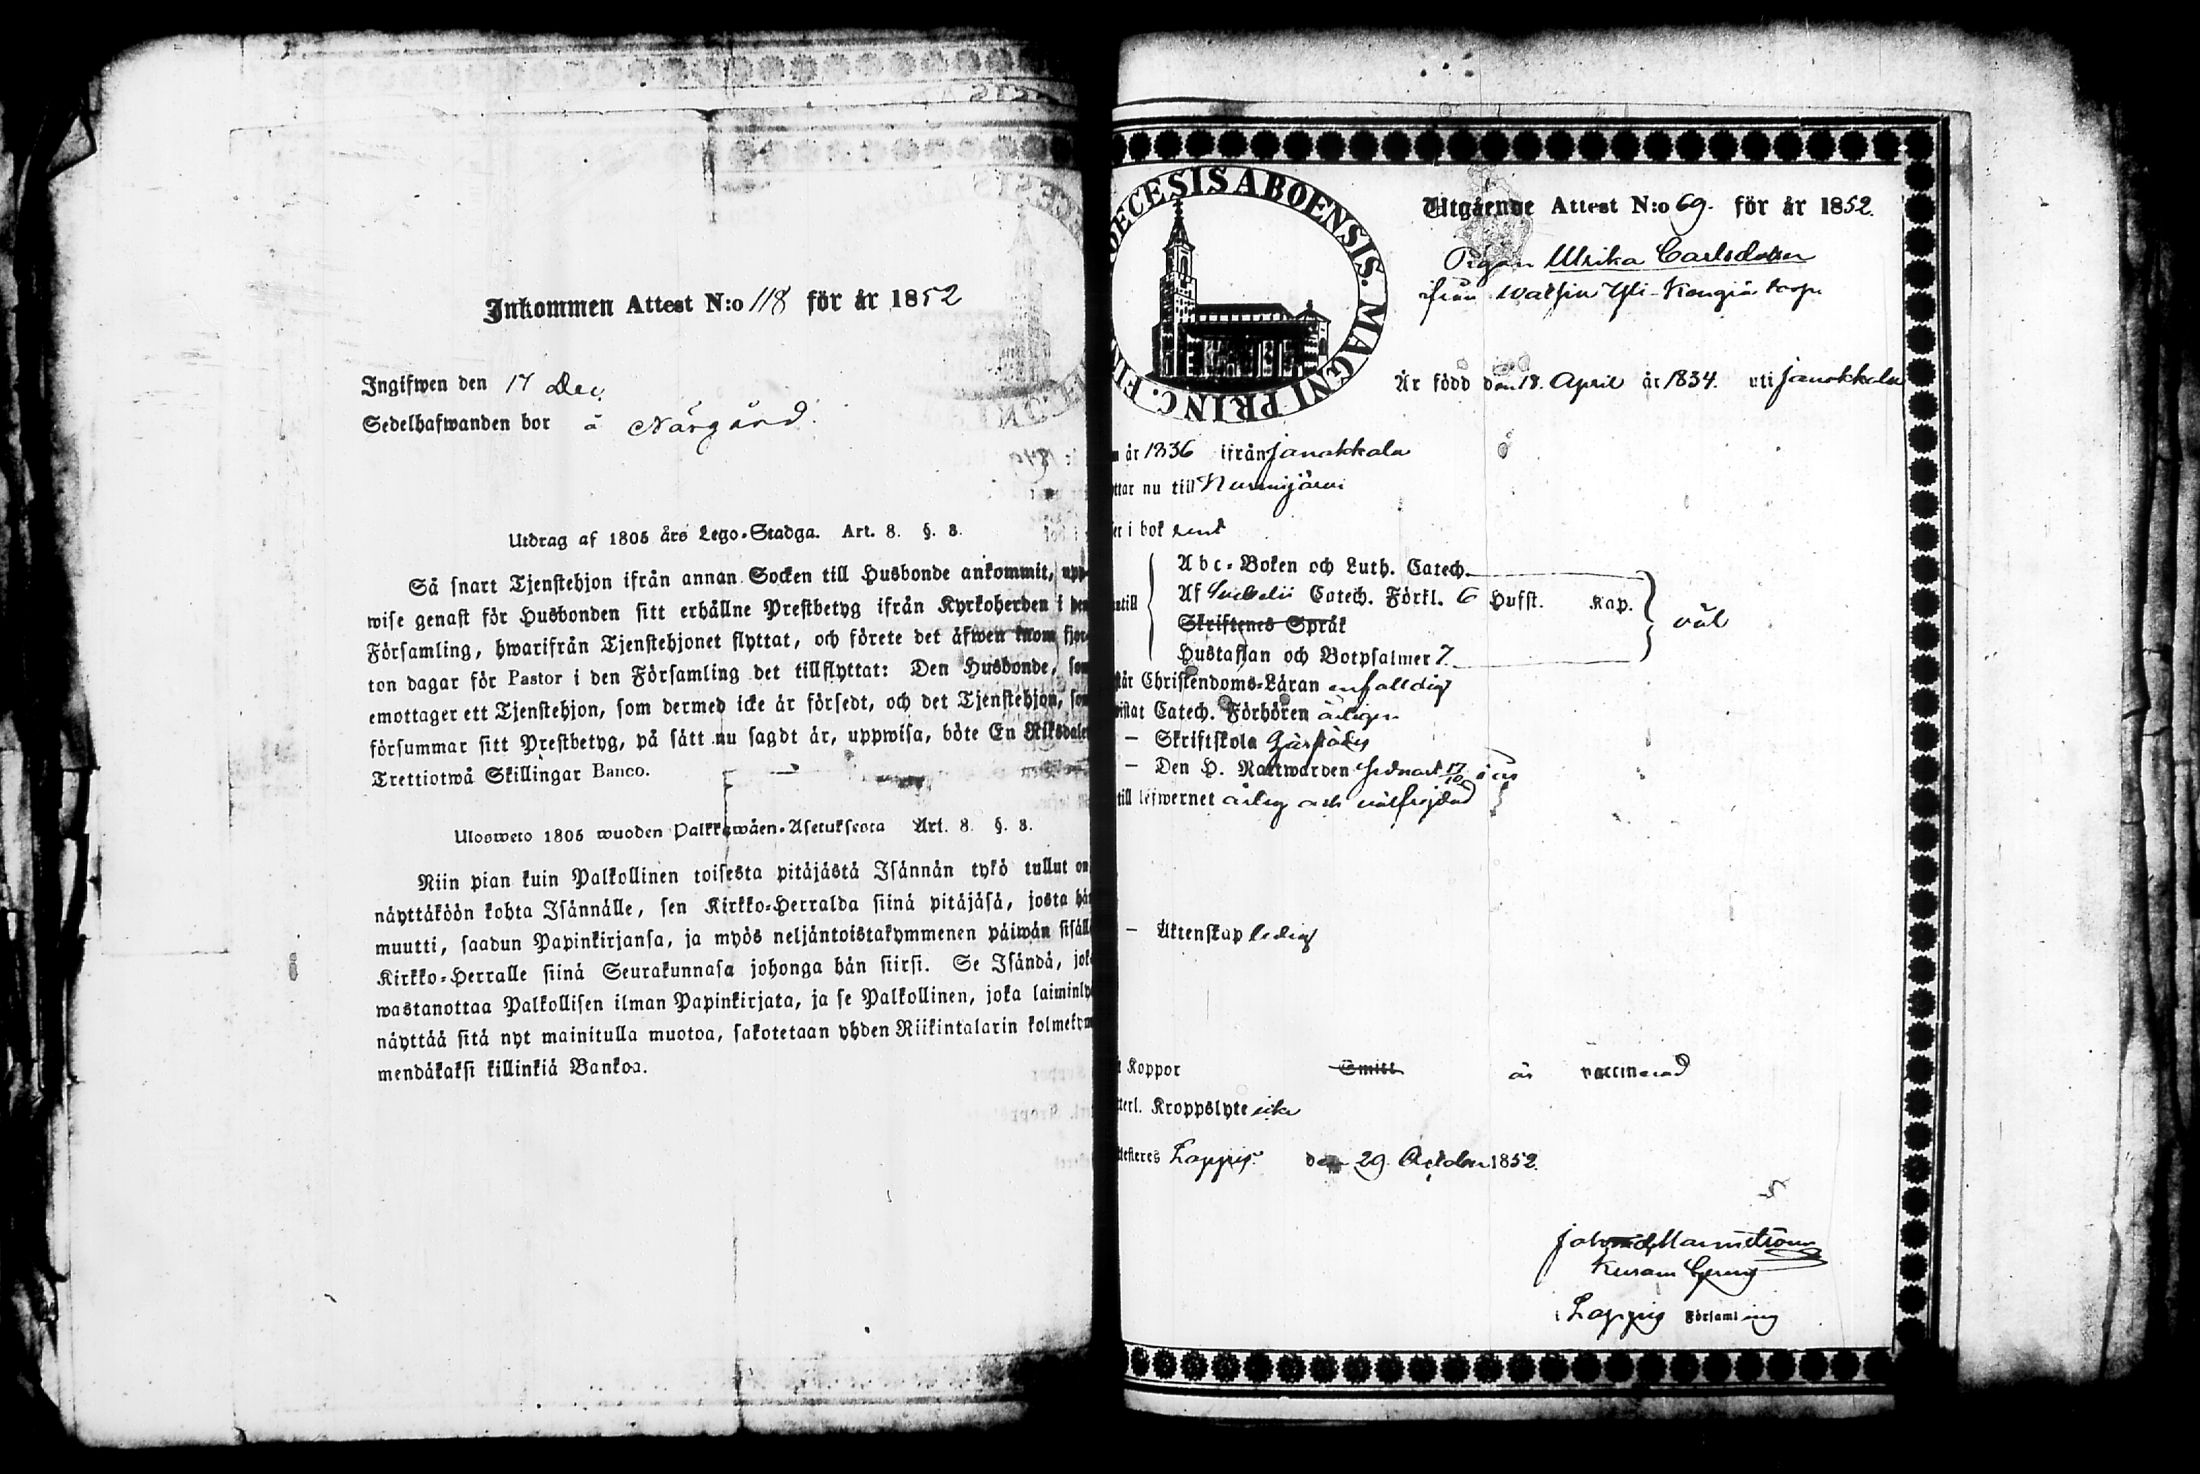 Inkommen Attest N:o 118 för år 1852
Ingifwen den 17 Dec.
Sedelhafwanden bor å Närgård.
Utdrag af 1805 års Lego-Stadga. Art. 8. §. 8.
Så snart Tjenstehjon ifrån annan Socken till Husbonde ankommit, upp-
wise genast för Husbonden sitt erhållne Prestbetyg ifrån Kyrkoherden i den
Församling, hwarifrån Tjenstehjonet flyttat, och förete det äfwen inom fjor-
ton dagar för Pastor i den Församling det tillflyttat: Den Husbonde, som
emottager ett Tjenstehjon, som dermed icke är försedt, och det Tjenstehjon, som
försummar sitt Prestbetyg, på sätt nu sagdt är, uppwisa, böte En Riksdaler
Trettiotwå Skillingar Banco.
Ulosweto 1805 wuoden Palkkawäen-Asetuksesta Art. 8. §. 8.
Niin pian kuin Palkollinen toisesta pitäjästä Isännän tykö tullut on
näyttäköön kohta Isännälle, sen Kirkko-Herralda siinä pitäjäsä, josta hän
muutti, saadun Papinkirjansa, ja myös neljäntoistakymmenen päiwän sisällä
Kirkko-Herralle siinä Seurakunnasa johonga hän siirsi. Se Isändä, joka
wastanottaa Palkollisen ilman Papinkirjata, ja se Palkollinen, joka laiminly
näyttää sitä nyt mainitulla muotoa, sakotetaan yhden Riikintalarin kolmekym
mendäkaksi killinkiä Bankoa.
ECESIS ABOENSIS. MAGNI PRINC. FI
Utgående Attest N:o 69. för år 1852.
Pigan Ulrika Carlsdotter
ifrån Watsia Yli-Kengiä torp
Är född den 18. April år 1834. uti Janakkala
år 1836 ifrån Janakkala
ttar nu till Nurmijärvi
er i bok rent
Abc-Boken och Luth. Catech.
Af Swebelii Catech. Förkl. 6 Hufst. Kap.
Skriftenes Språk
Hustaflan och Botpsalmer 7.
väl
står Christendoms-Läran enfaldigt
wistat Catech. Förhören årligen
— Skriftskola
— Den H. Nattwarden sednast 17/10 i år
till lefwernet ärlig och välfrejdad
— Äktenskap ledig
Koppor Smitt är vaccinerad
terl. Kroppslyte icke
ttesteres Loppis den 29. October 1852.
Kyrkoh. adj.
i Loppis Församling